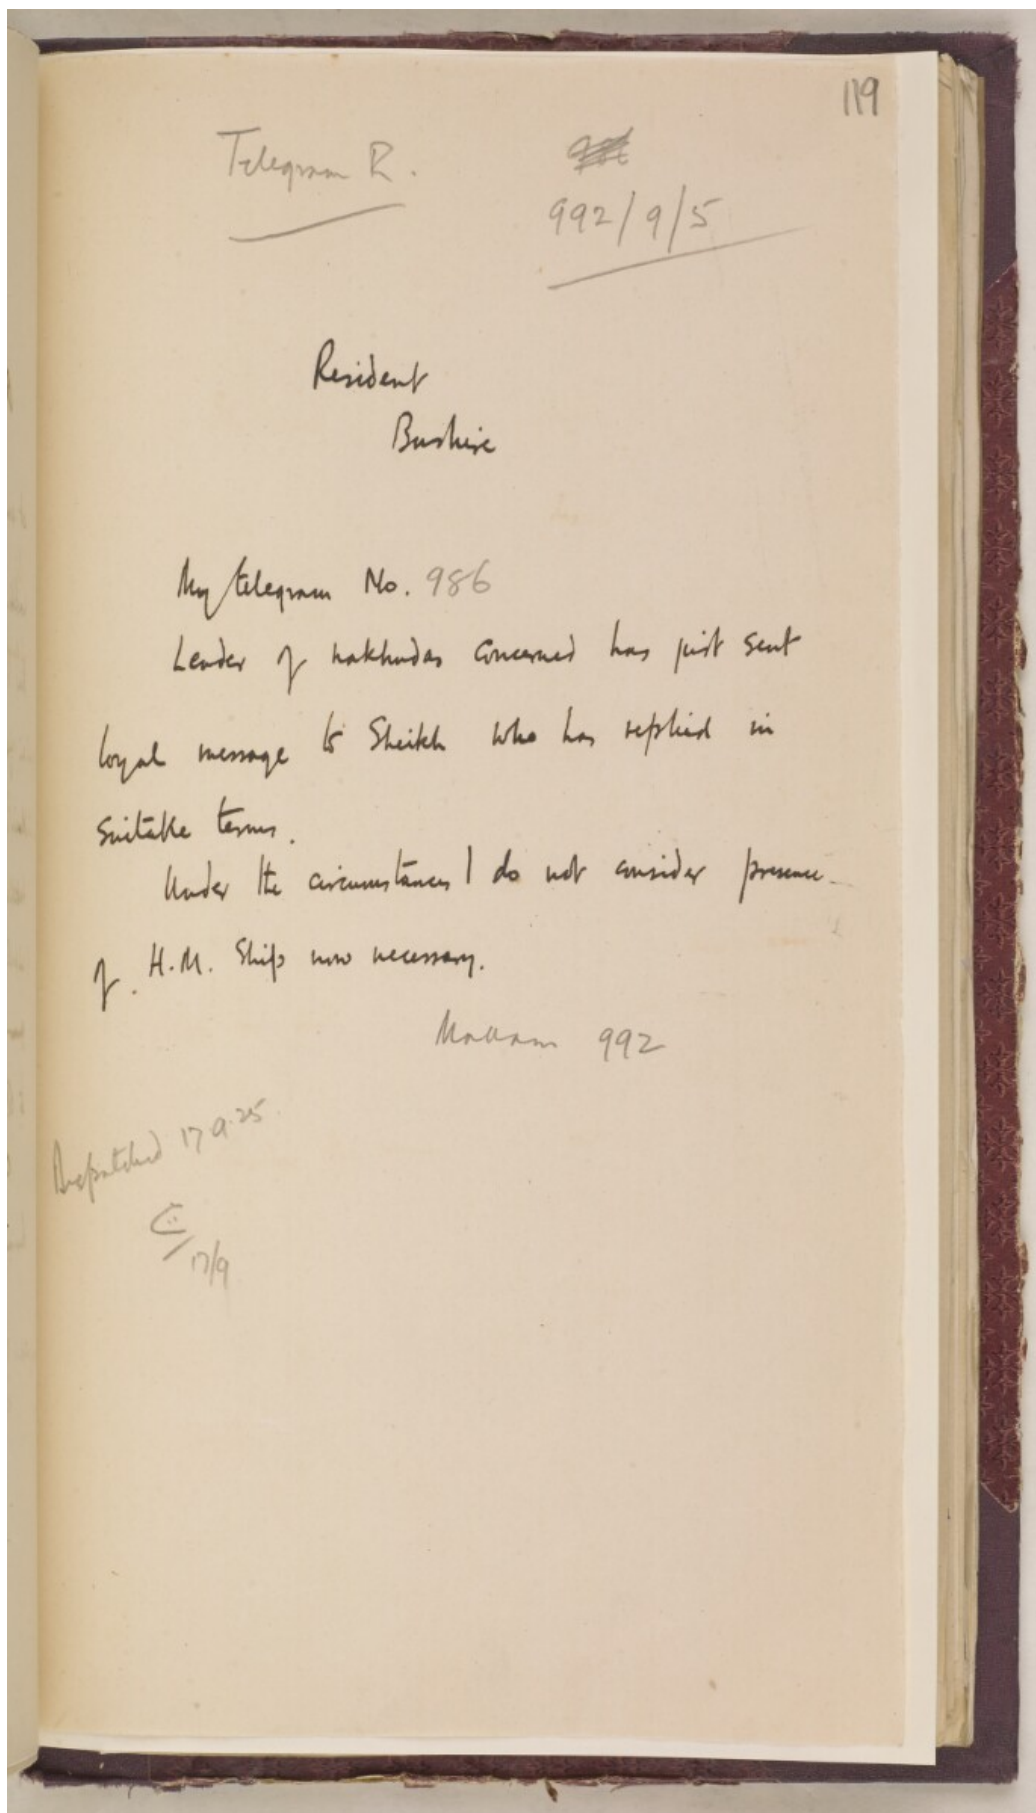 119
Telegram R.
992/9/5
Resident
Bushire
My telegram No. 986
Leader of nakhudas concerned has just sent
loyal message to Sheikh who has replied in
suitable terms.
Under the circumstances I do not consider presence
of H.M. Ship now necessary.
992
Despatched 17.9.25
17/9